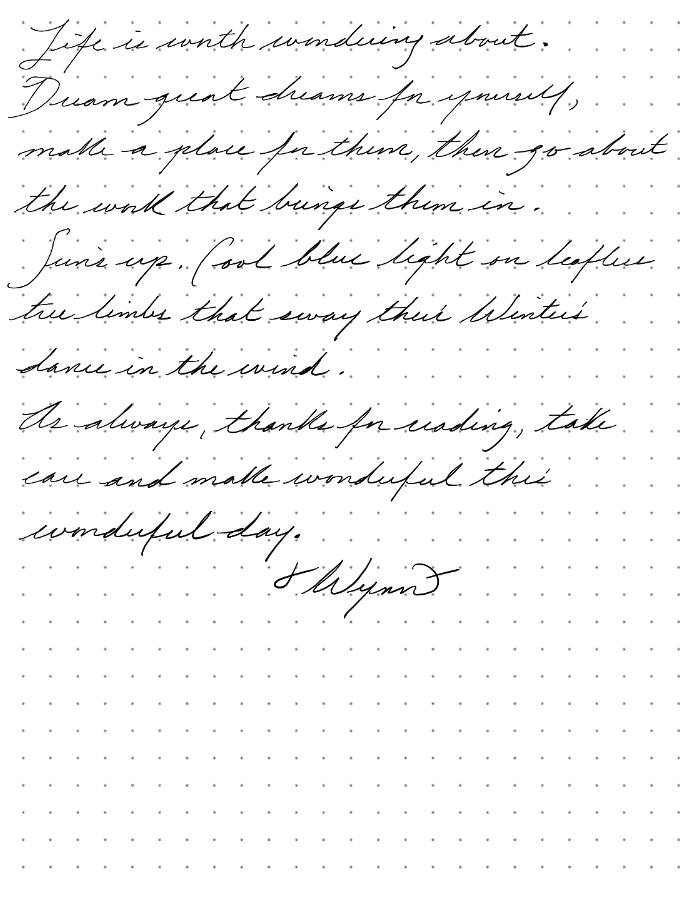 Life is worth wondering about.
Dream great dreams for yourself,
make a place for them, then go about
the work that brings them in.
Sun's up. Cool blue light on leafless
tree limbs that sway their Winter's
dance in the wind.
As always, thanks for reading, take
care and make wonderful this
wonderful day.
Wynn